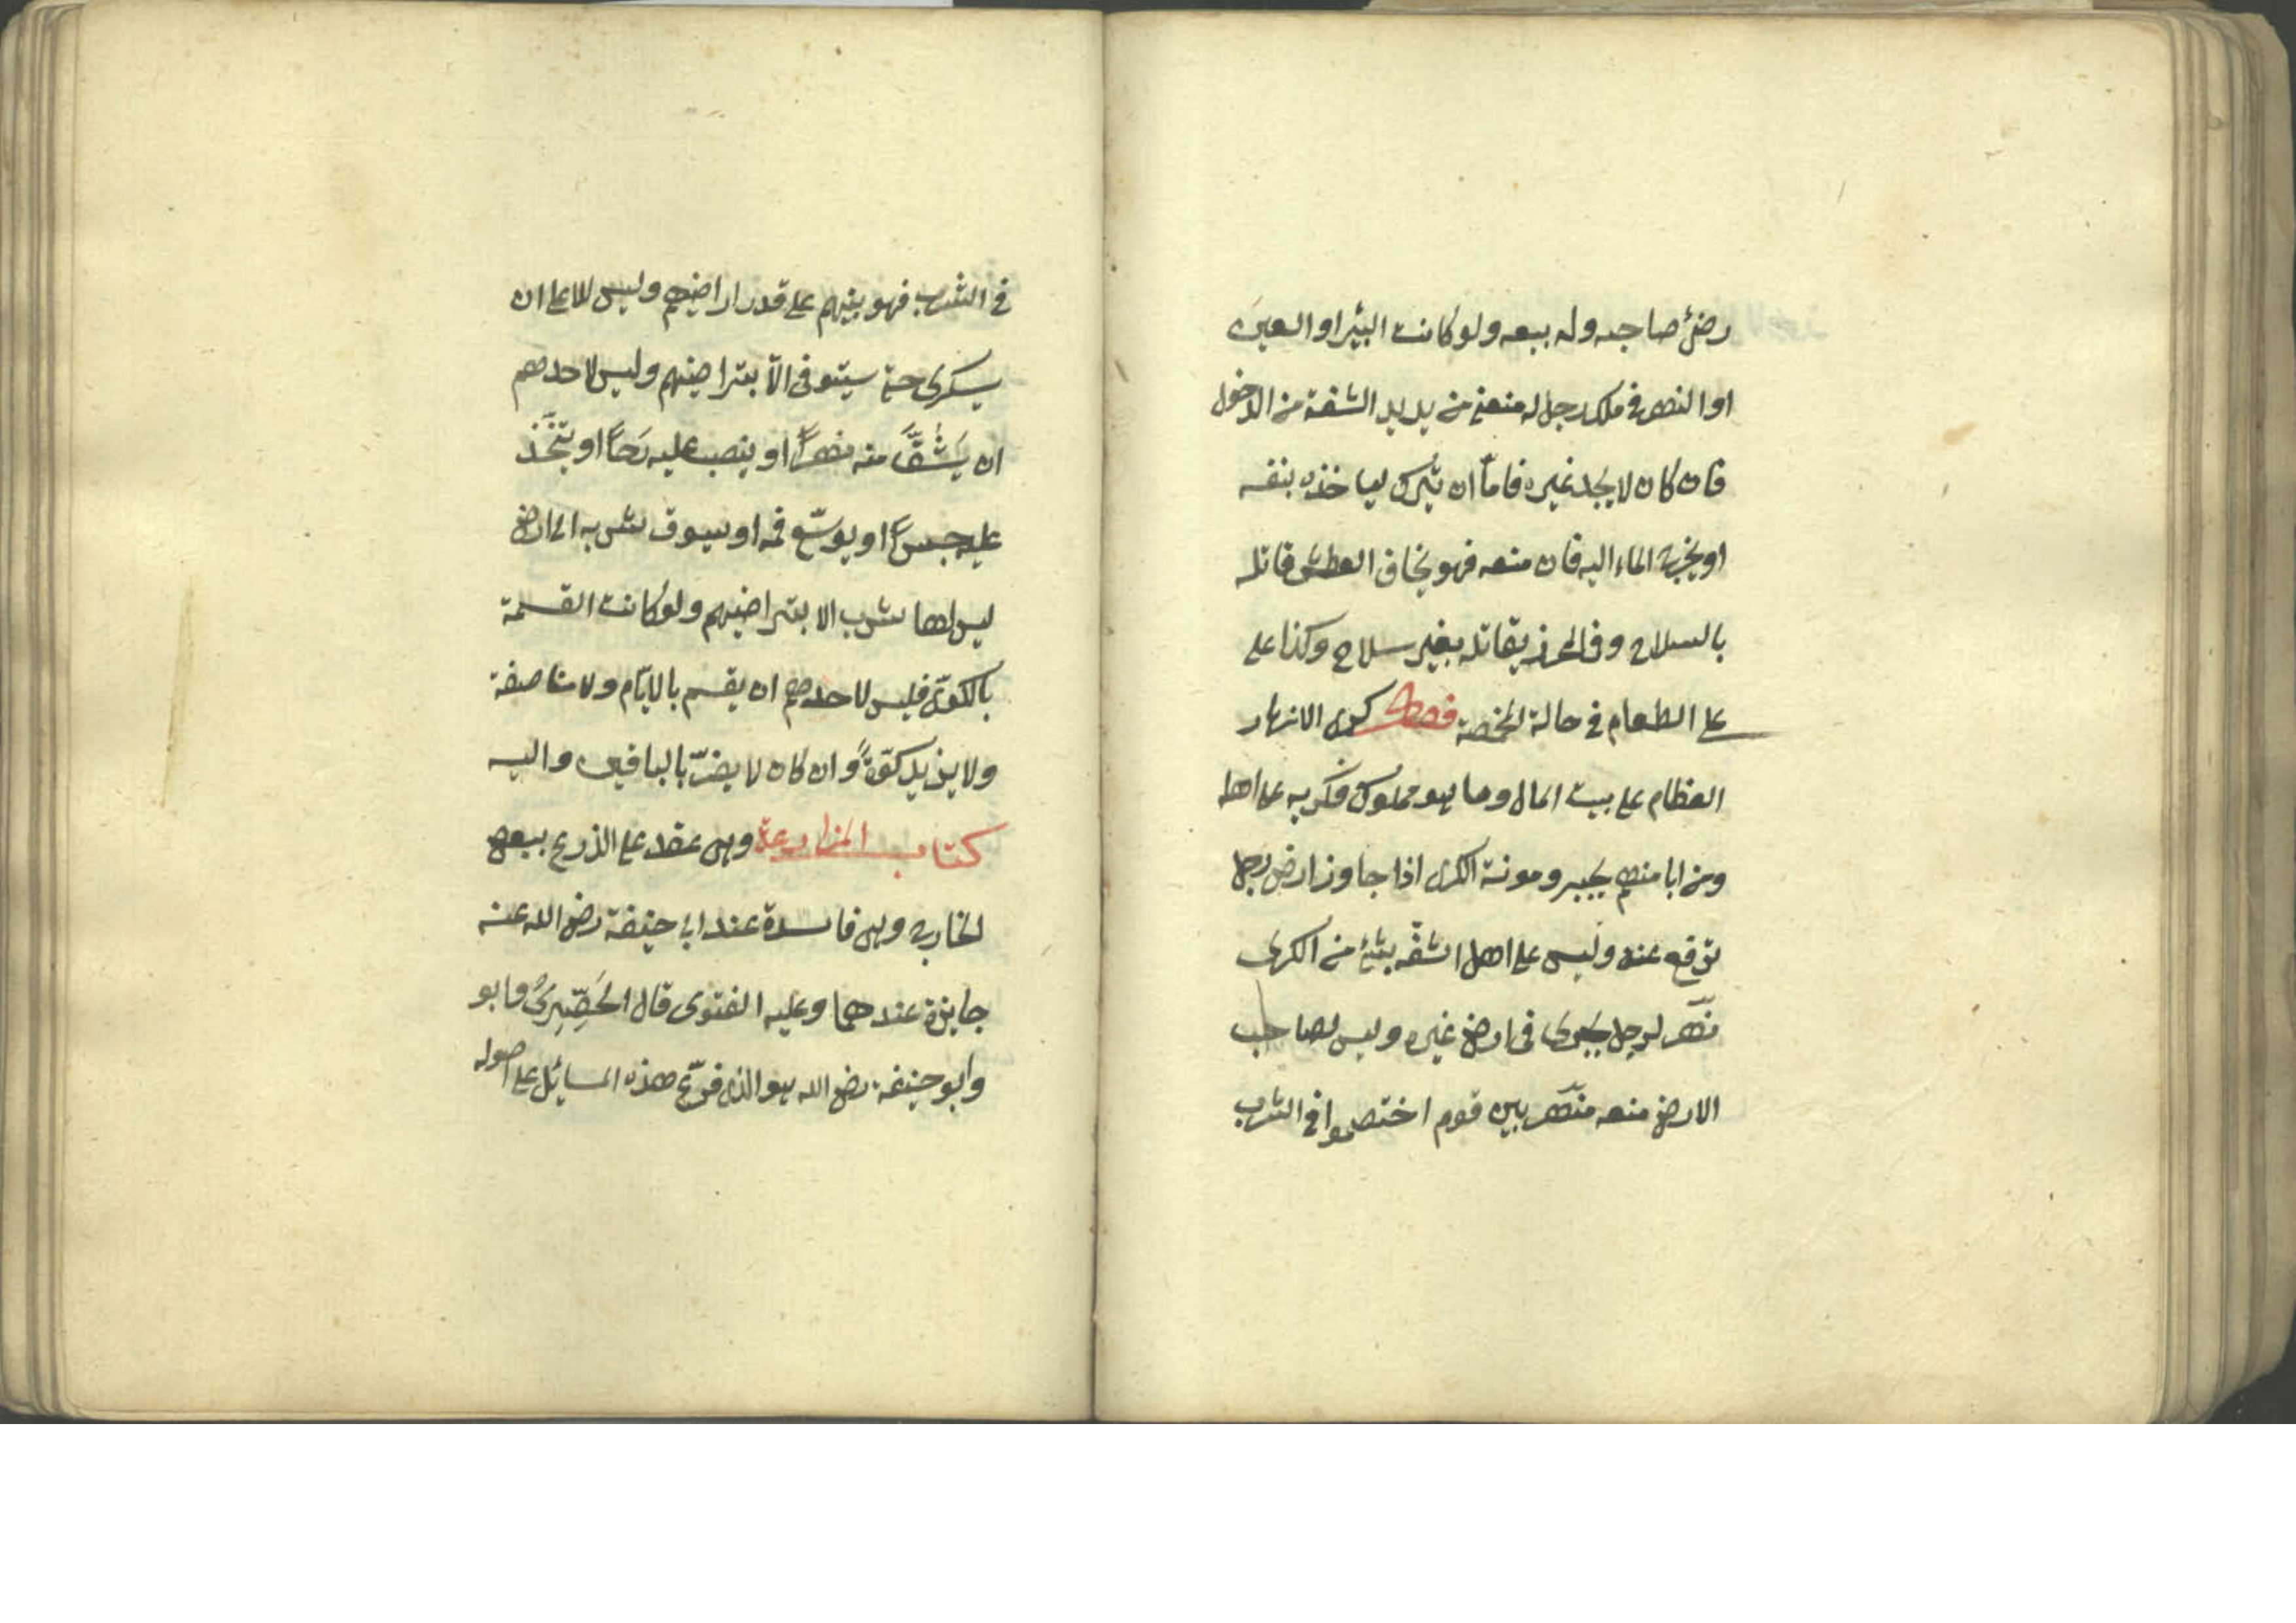 رضئ صاحبه وله بيعه ولو كانت البئر او العين
او النهر في ملك رجل له منعه من يريد الشفة من الدخول
فان كان لا يجد غيره فاما ان يترك لياخذه بنفسه
او يخرج الماء اليه فان منعه فهو يخاف العطش قاتله
بالسلاح وفي المحرز يقاتله بغير سلاح وكذا على
على الطعام في حالة المخمصة فصل كرى الانهار
العظام على بيت المال وما هو مملوك فكريه على اهله
ومن ابا منهم يجبر ومونة الكرى اذا جاوز ارض رجل
ترفع عنه وليس على اهل الشفّه بشئ من الكرى
نهر لرجل يجرى في ارض غيره وليس لصاحب
الارض منعه نهر بين قوم اختصموا في الشرب
في الشرب فهو بينهم على قدر اراضيهم وليس للاعلى ان
يسكر حتى يستوفى الّا بتراضيهم وليس لاحدهم
ان يَشُقَّ منه نهراً او ينصب عليه رَحاً او يتّخَذ
عليه جسراً او يوسّع فمه او يسوق شربه الى ارض
ليس لها شرب الا بتراضيهم ولو كانت القسمة
بالكوىّ فليس لاحدهم ان يقسم بالايّام ولا مناصفة
ولا يزيد كوّةً وان كان لا يضرّ بالباقين واليه
كتاب المزارعة وهى عقد على الزرع ببعض
الخارج وهى فاسدة عند ابى حنيفة رضى الله عنه
جايزة عندهما وعليه الفتوى قال الحَصِيرىُّ وابو
وابو حنيفة رضى الله هو الذى فرّع هذه المسائل على اصوله